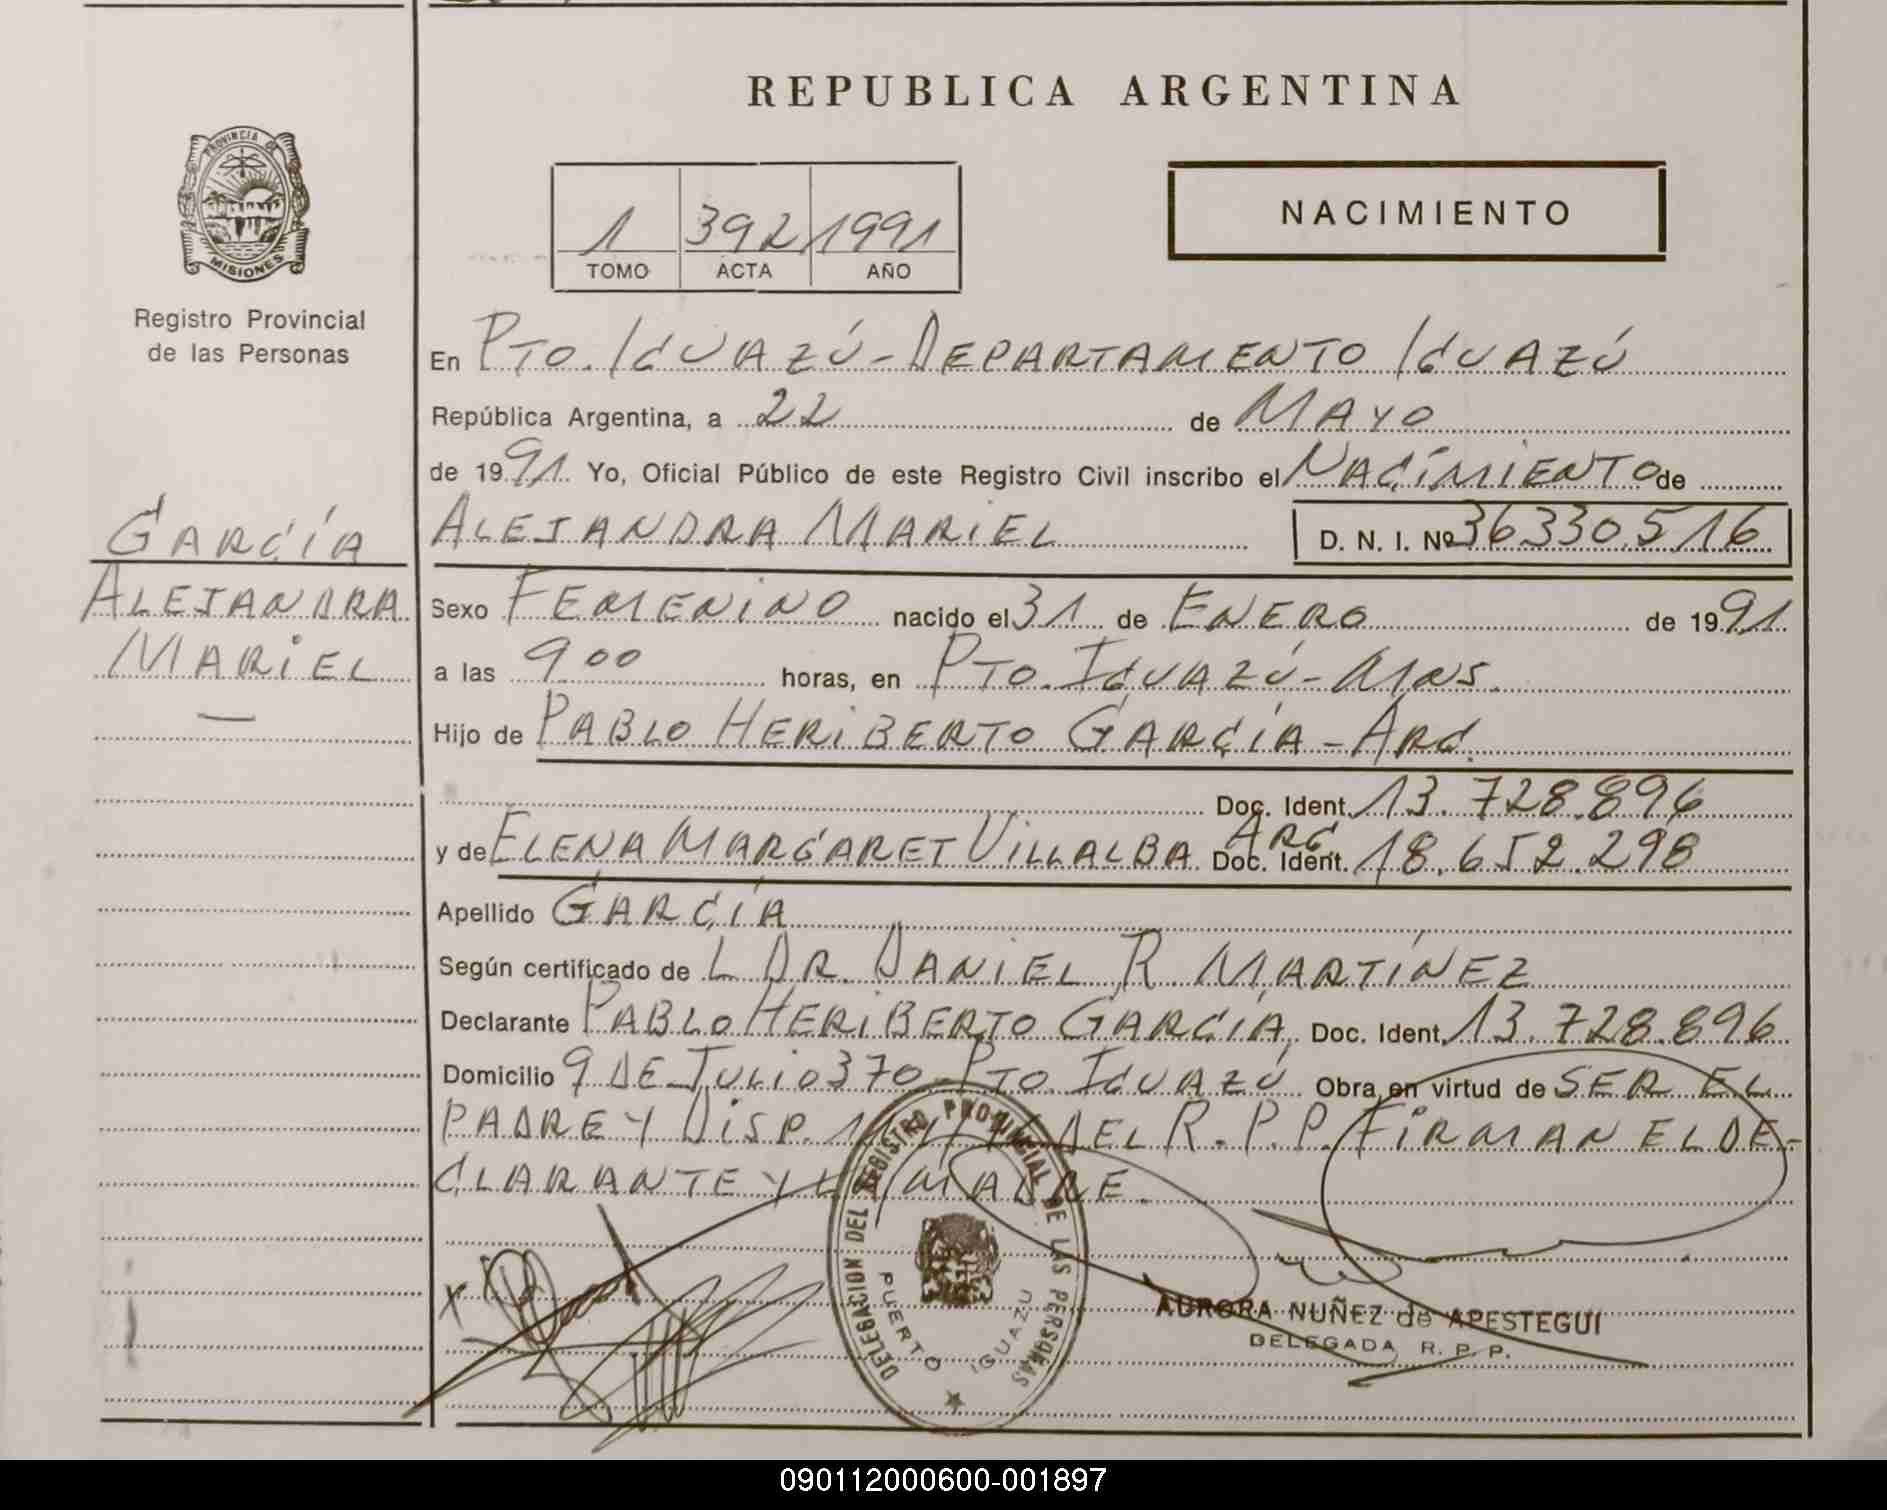 REPUBLICA ARGENTINA
PROVINCIA DE
MISIONES
Registro Provincial
de las Personas
1 392 1991
TOMO ACTA AÑO
NACIMIENTO
En PTO. IGUAZÚ - DEPARTAMENTO IGUAZÚ
República Argentina, a 22 de MAYO
de 1991 Yo, Oficial Público de este Registro Civil inscribo el NACIMIENTO de
GARCÍA
ALEJANDRA MARIEL
ALEJANDRA MARIEL D. N. I. Nº 36330516
Sexo FEMENINO nacido el 31 de ENERO de 1991
a las 9 00 horas, en PTO. IGUAZÚ - MNS.
Hijo de PABLO HERIBERTO GARCÍA - ARG.
Doc. Ident. 13.728.896
y de ELENA MARGARET VILLALBA ARG. Doc. Ident. 18.652.298
Apellido GARCÍA
Según certificado de L DR. DANIEL R. MARTÍNEZ
Declarante PABLO HERIBERTO GARCÍA, Doc. Ident. 13.728.896
Domicilio 9 DE JULIO 370 PTO. IGUAZÚ Obra en virtud de SER EL
PADRE Y DISP. DEL R.P.P. FIRMAN EL DE-
CLARANTE Y MADRE.
x
DELEGACION DEL REGISTRO PROVINCIAL DE LAS PERSONAS
PUERTO IGUAZU
AURORA NUÑEZ de APESTEGUI
DELEGADA R. P. P.
090112000600-001897